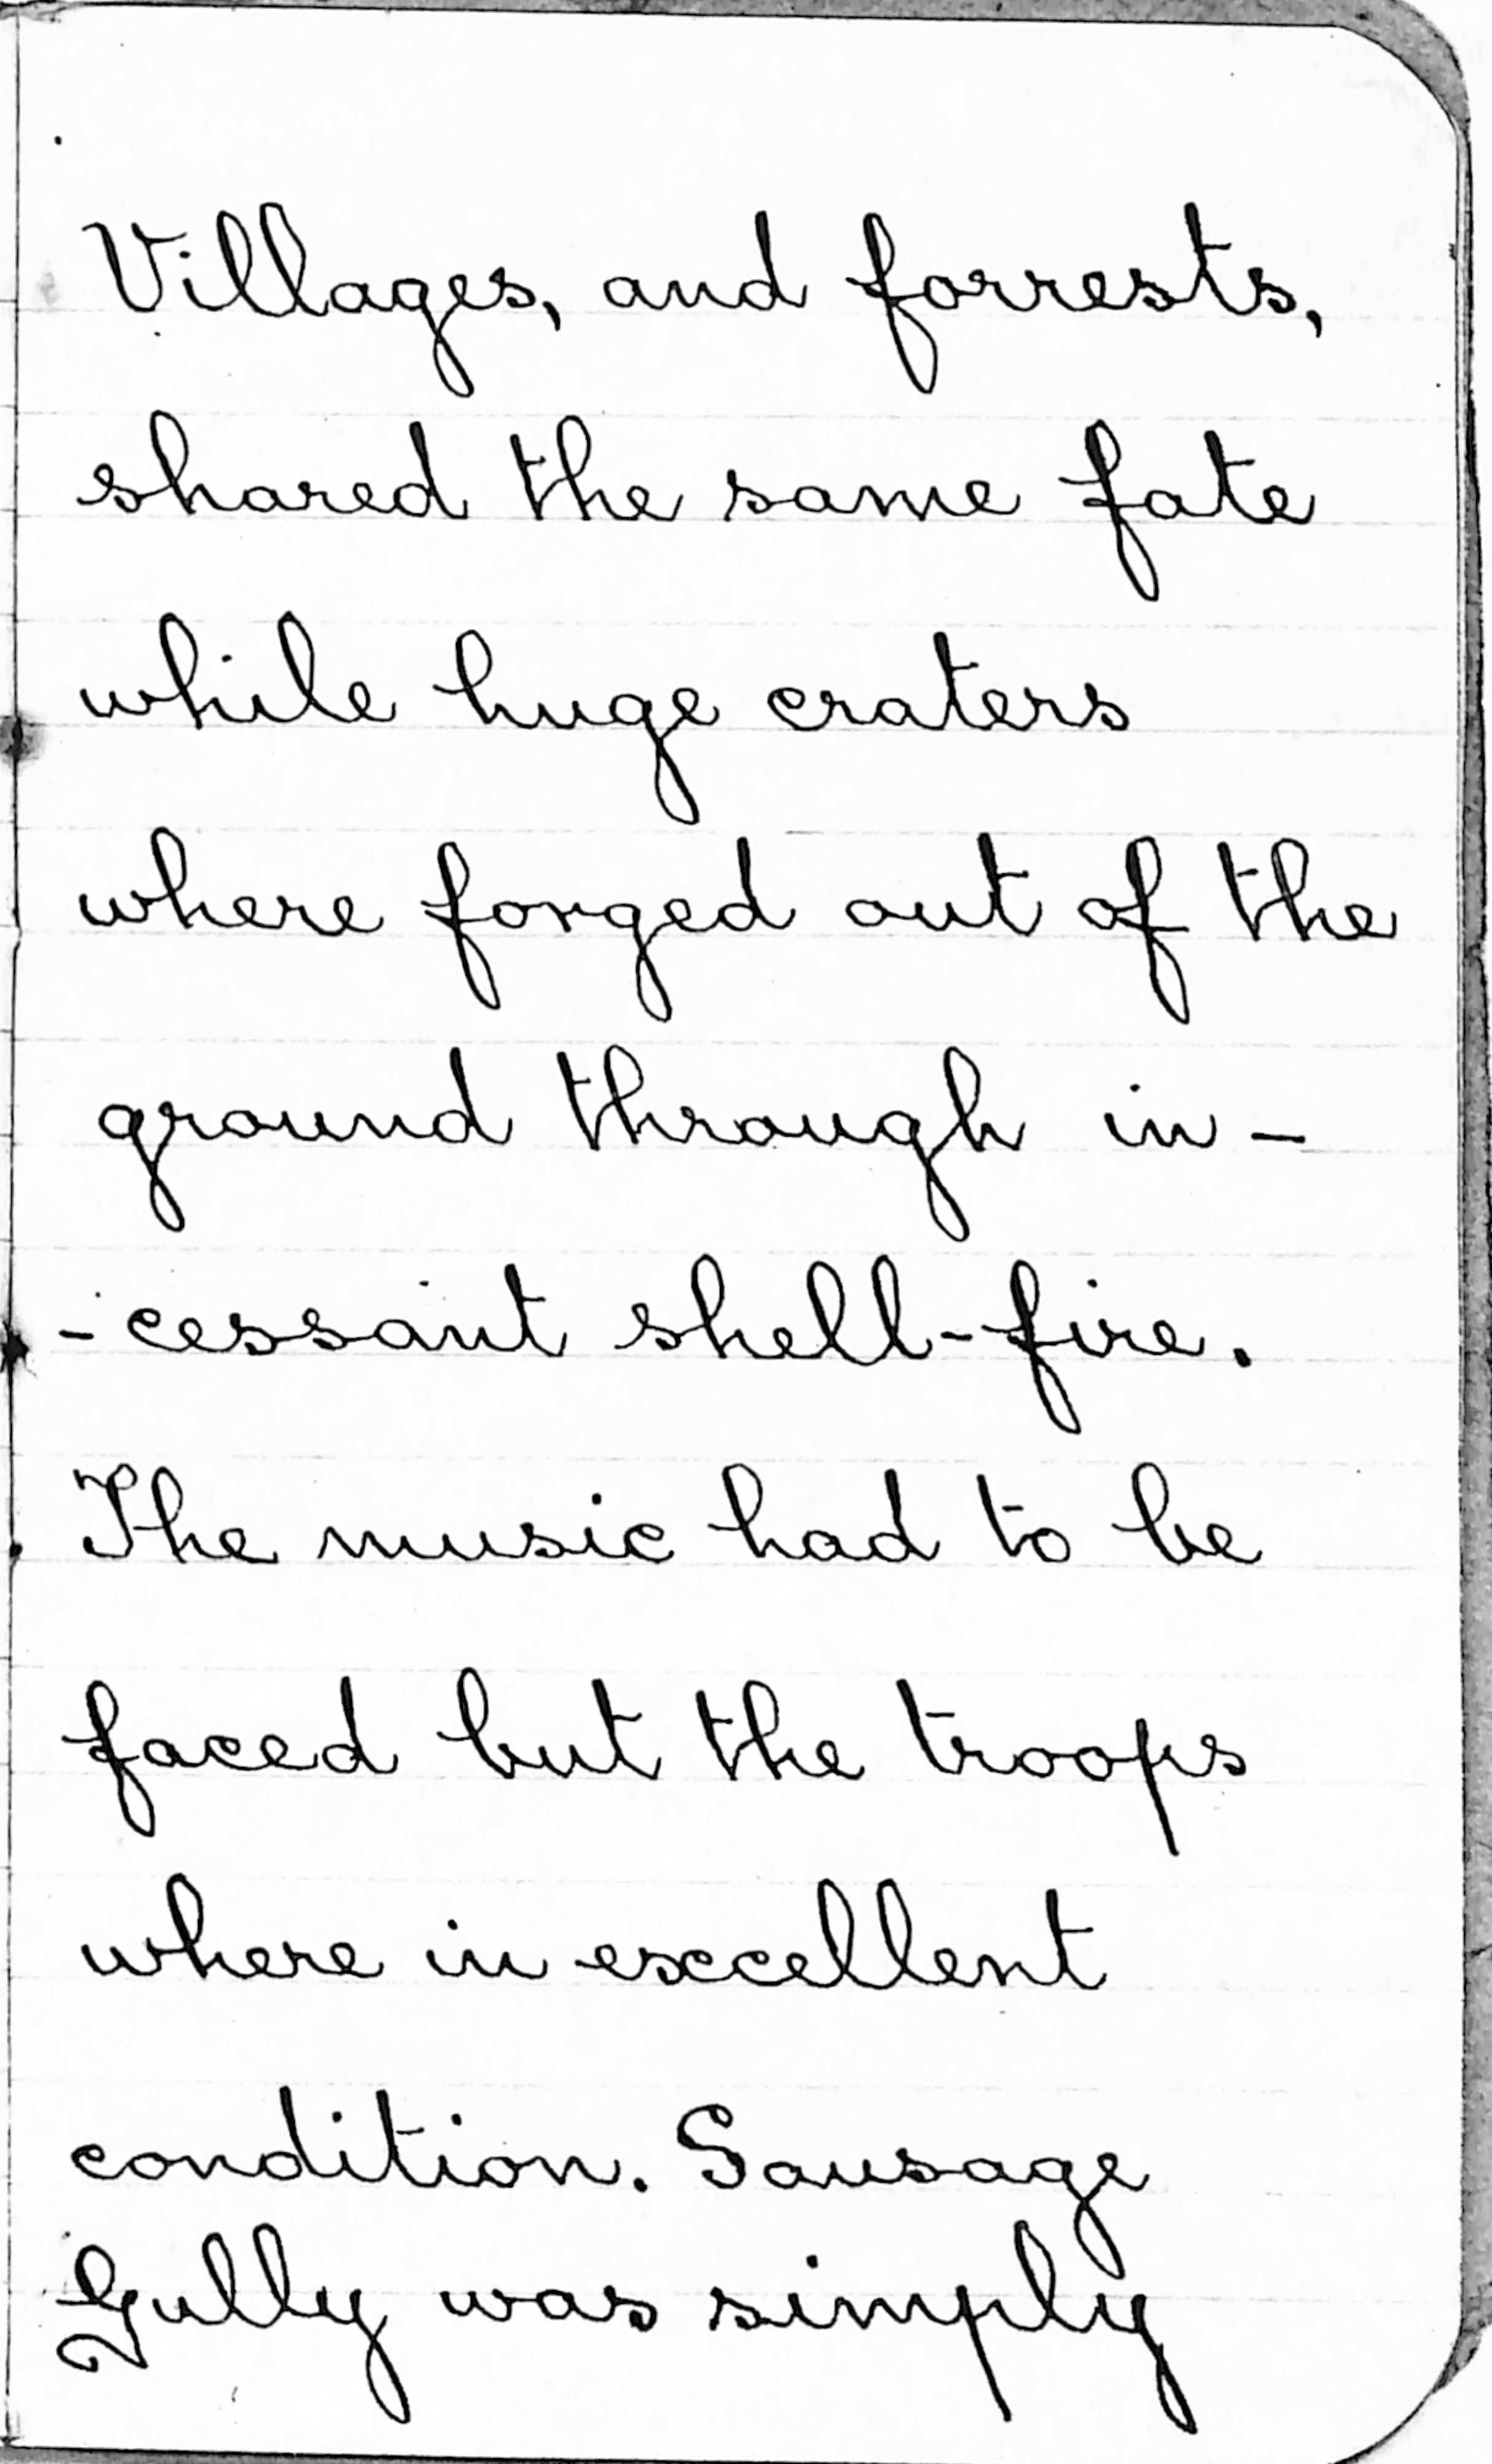 Villages, and forrests,
shared the same fate
while huge craters
where forged out of the
ground through in-
-cessant shell-fire.
The music had to be
faced but the troops
where in excellent
condition. Sausage
Gully was simply